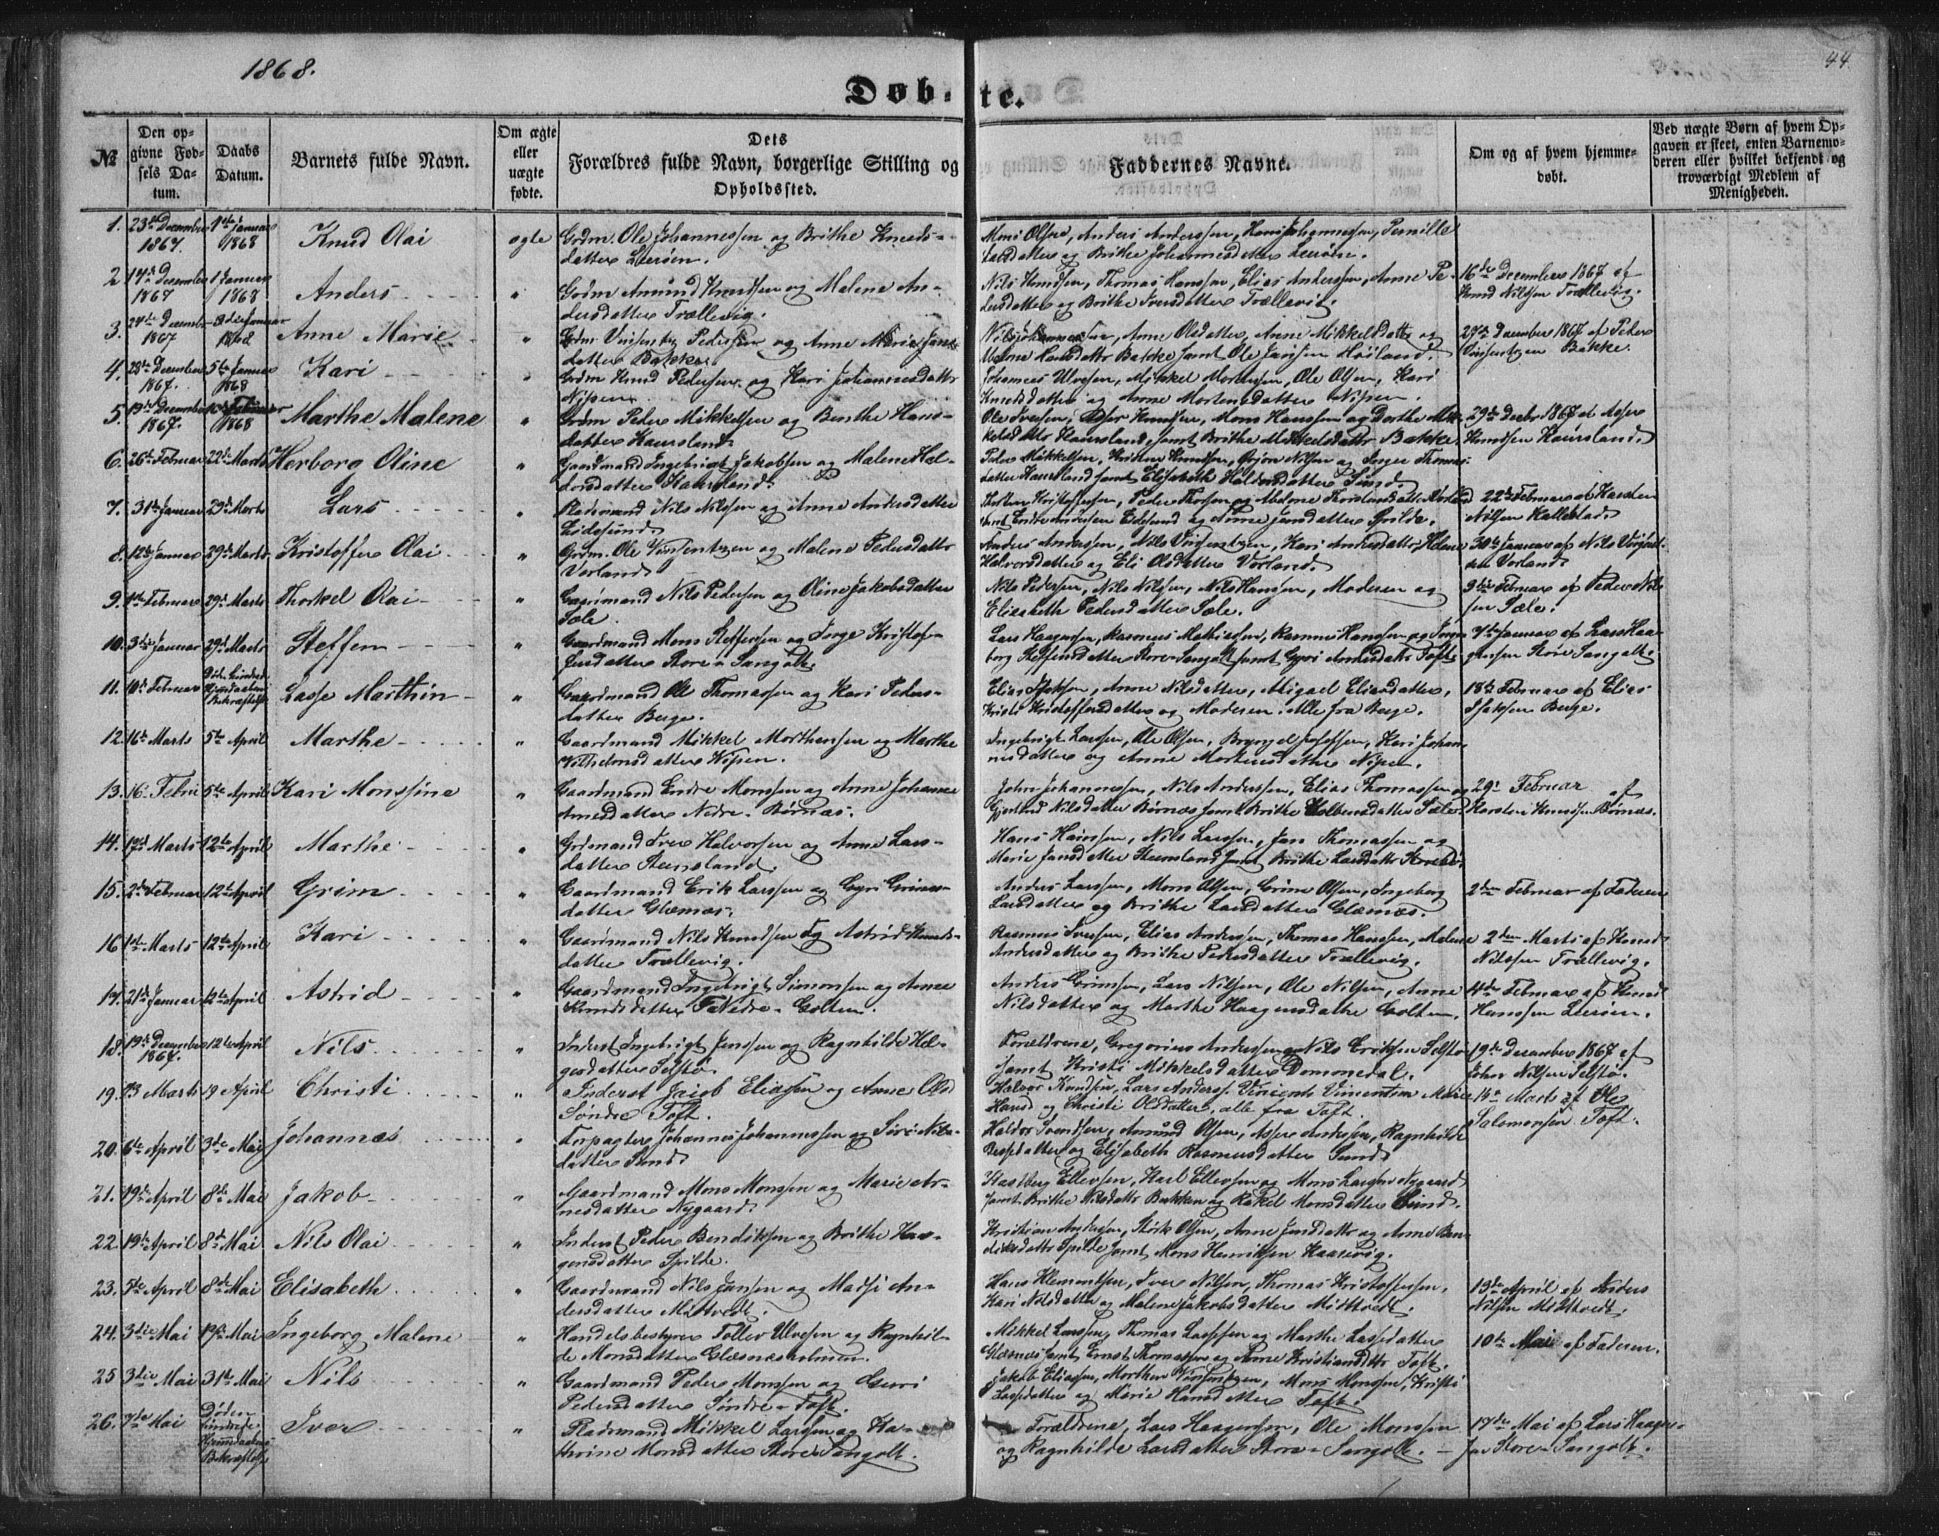 1868.
44.
Døbte.
№
Den opgivne Fødsels Datum.
Daabs Datum.
Barnets fulde Navn.
Om ægte eller uægte fødte.
Dets Forældres fulde Navn, borgerlige Stilling og Opholdssted.
Faddernes Navne.
Om og af hvem hjemmedøbt.
Ved uægte Børn af hvem Opgaven er skeet, enten Barnemoderen eller hvilket bekjendt og troværdigt Medlem af Menigheden.
1. 23de December 1867. 1ste Januar 1868 Knud Olai ægte Grdm. Ole Johannessen og Brithe Knuds-
datter Leerøen.
Mons Olsen, Anders Anderssen, Hans Johannessen, Pernille
datter og Brithe Johannesdatter Leerøen.
2 14de December 1867 1 Januar 1868 Anders " Grdm Amund Knutsen og Malene An-
dersdatter Trællevig.
Nils Knudsen, Thomas Hanssen, Elias Anderssen, Anne Pe-
dersdatter og Brithe Iversdatter Trællevig.
16de December 1867 af
Knud Nilssen Trællevig.
3. 24de Decembr 1867 Januar 1868 Anne Marie " Grdm Vinsents Pederssen og Anne Marie Jans-
datter Bakke.
Nils Johannessen, Anne Olsdatter, Anne Mikkelsdatter og
Malene Hansdattr Bakke samt Ole Hoiland.
27de December 1867 af Peder
Vinsentsen Bakke.
4. 28de December 1867. 5te Januar 1868 Kari " Grdm Knud Pedersen og Kari Johannesdattr
Nipen.
Johannes Ulvesen, Mikkel Mortensen, Ole Olsen, Kari
Knudsdatter og Anne Mortensdatter Nipen.
5. 19de December 1867. 1868 Marthe Malene " Grdm Peder Mikkelsen og Benthe Hans-
datter Haursland.
Ole Iversen, Asser Knudsen, Mons Hanssen og Dorthe Mik-
kelsdattr Haursland, samt Brithe Mikkelsdattr Bakke.
29de Decbr 1867 af Asser
Knudsen Haursland.
6. 26de Februar 22de Marts Herborg Oline " Gaardmand Ingebrigt Jakobsen og Malene Hal-
dorsdatter Haursland.
Peder Mikkelsen, Kristen Knudsen, Nilsen og Inger Thomas-
datter Haursland samt Elisabeth Haldorsdatter Sund.
7. 31te Januar 29de Marts Lars " Pladsmand Nils Nilsen og Anne Andersdatter
Eidesund.
Kristoffersen, Peder Thorsen og Malene
samt Endre Andersen Eidesund og Anne Jansdatter Spilde.
22de Februar af Karsten
Nilsen Kallestad.
8. 12te Januar 29de Marts Kristoffer Olai " Grdm. Ole Vinsentsen og Malene Pedersdattr
Vorland.
Anders Andersen, Nils Vinsentsen, Kari Andersdattr, Helene
Halvorsdatter og Eli Olsdatter Vorland.
30te Januar af Nils Vinsent-
sen Vorland.
9. 1ste Februar 29de Marts Thorkel Olai " Gaardmand Nils Pedersen og Oline Jakobsdatter
Sæle.
Nils Pedersen, Nils Nilsen, Nils Hansen, Moderen og
Elisabeth Pedersdatter Sæle.
9de Februar af Peder Nil-
sen Sæle.
10. 3die Januar 29de Marts Steffen " Gaardmand Mons Steffensen og Sørge Kristof-
fersdatter Store-Sangolt.
Lars Haagensen, Rasmus Mathiassen, Rasmus Hanssen og
borg Steffensdatter Store-Sangolt samt Guri Andersdattr Toft.
7de Januar af Lars Haa-
gensen Store Sangolt.
11. 10de Februar Død. Hjemdaaben Bekræftelse Lasse Marthin " Gaardmand Ole Thomassen og Kari Peders-
datter Berge.
Elias Isaksen, Anne Nilsdatter, Abigael Eliasdatter,
Kristi Kristoffersdatter og Moderen. Alle fra Berge.
18de Februar af Elias
Isaksen Berge.
12. 16de Marts 5te April Marthe " Gaardmand Mikkel Morthensen og Marthe
Vilhelmsdatter Nipen.
Ingebrigt Larssen, Ole Olsen, Brynjel Josefsen, Kari Johan-
nesdatter og Anne Mortensdatter Nipen.
13. 16. Febr. 5te April Kari Monssine " Gaardmand Endre Monssen og Anne Johanne
Arnesdatter Nedre-Børnæs.
John Johannessen, Nils Anderssen, Elias Thomassen og
Gjertrud Nilsdatter Børnæs samt Brithe Sæle.
29de Februar af
Karsten Knudsen Børnæs.
14. 12te Marts 12te April Marthe " Grdmand Iver Halvorsen og Anne Lars-
datter Steensland.
Hans Hansen, Nils Larssen, Jan Thomassen og
Marie Jansdatter Steensland samt Brithe Larsdattr
15. 2de Februar 12te April Grim " Gaardmand Erik Larssen og Guri Grims-
datter Glæsnæs.
Anders Larssen, Mons Olsen, Grim Olsen, Ingeborg
Larsdatter og Brithe Larsdatter Glæsnæs.
2den Februar af Faderen
16 1ste Marts 12te April Kari " Gaardmand Nils Knudsen og Astrid Knuds-
datter Trællevig.
Rasmus Iversen, Elias Anderssen, Thomas Hanssen, Malene
Andersdatter og Brithe Pedersdatter Trællevig.
2den Marts af Knud
Nilssen Trællevig.
17. 21de Januar 12te April Astrid " Gaardmand Ingebrigt Simonsen og Anne
Knudsdatter Nedre-Golten.
Anders Grimsen, Lars Nilsen, Ole Nilsen, Anne
Nilsdatter og Marthe Haagensdatter Golten.
4de Februar af Knud
Hanssen Leerøen.
18. 19de December 1867. 12te April Nils " Inderst Ingebrigt Jenssen og Ragnhilde Hel-
gesdatter Selstø.
Forældrene, Gregorius Anderssen og Nils Eriksen Selstø
samt Kristi Mikkelsdatter Dommedal.
19de December 1867 af
John Nilsen Selstø.
19. 13 Marts 19 April Christi " Inderst Jacob Eliassen og Anne Olsd.
Søndre Toft.
Halvor Knudsen, Lars Anderss. Vincents Vincentsen Marie
Hansd og Christi Olsdatter, alle fra Toft.
14de Marts af Ole
Salomonsen Toft.
20. 6te April 3die Mai Johannæs " Forpagter Johannes Johannessen og Siri Nils-
datter Sund.
Haldor Svendsen, Amund Olsen, Asser Andersen, Ragnhilde
datter og Elisabeth Rasmusdatter Sund.
21. 19de April 8de Mai Jakob " Gaardmand Mons Monssen og Marie Ar-
nesdatter Nygaard.
Kastberg Ellevsen, Karl Ellevsen og Mons Larsen Nygaard
samt Brithe Nilsdattr Bakken og Rakel Monsdatter Sund.
22. 19de April 8de Mai Nils Olai " Inderst Peder Bendiksen og Brithe Haa-
gensdatter Spilde.
Kristian Andersen, Størk Olsen, Anne Jansdattr og Anne Ben-
diksdattr Spilde samt Mons Henriksen Haasevig.
23. 5te April 8de Mai Elisabeth " Gaardmand Nils Jansen og Madsi An-
dersdatter Midtvedt.
Hans Klementsen, Iver Nilsen, Thomas Kristoffersen,
Kari Nilsdatter og Malene Jakobsdatter Midtvedt.
13de April af Anders
Nilsen Midtvedt.
24. 3die Mai Mai Ingeborg Malene " Handelsbestyrer Tollev Ulvesen og Ragnhil-
de Monsdatter Glæsnæsholmen.
Mikkel Larssen, Thomas Lassesen og Marthe Lassedatter
Glæsnæs samt Ernst Thomassen og Anne Kristiansdttr Toft.
10de Mai af Faderen.
25 3die Mai 31te Mai Nils " Gaardmand Peder Monssen og Guri
Pedersdatter Søndre-Toft.
Jakob Eliassen, Morthen Vinsentsen, Mons Monssen, Kristi
Lassedatter og Marie Hansdatter Toft.
26. 7de Mai Døden hindrede Hjemdaabens Bekræftelse Iver " Pladsmand Mikkel Larsen og Ka-
thrine Monsdatter Store-Sangolt.
Forældrene, Lars Haagenssen, Ole Monssen
og Ragnhilde Larsdatter Store-Sangolt.
17de Mai af Lars Haagen-
sen Store-Sangolt.